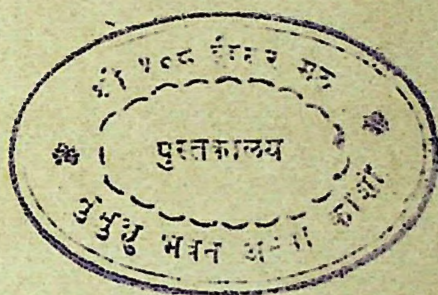 श्री १०८ ईश्वर मठ
पुस्तकालय
मुमुक्षु भवन अस्सी काशी